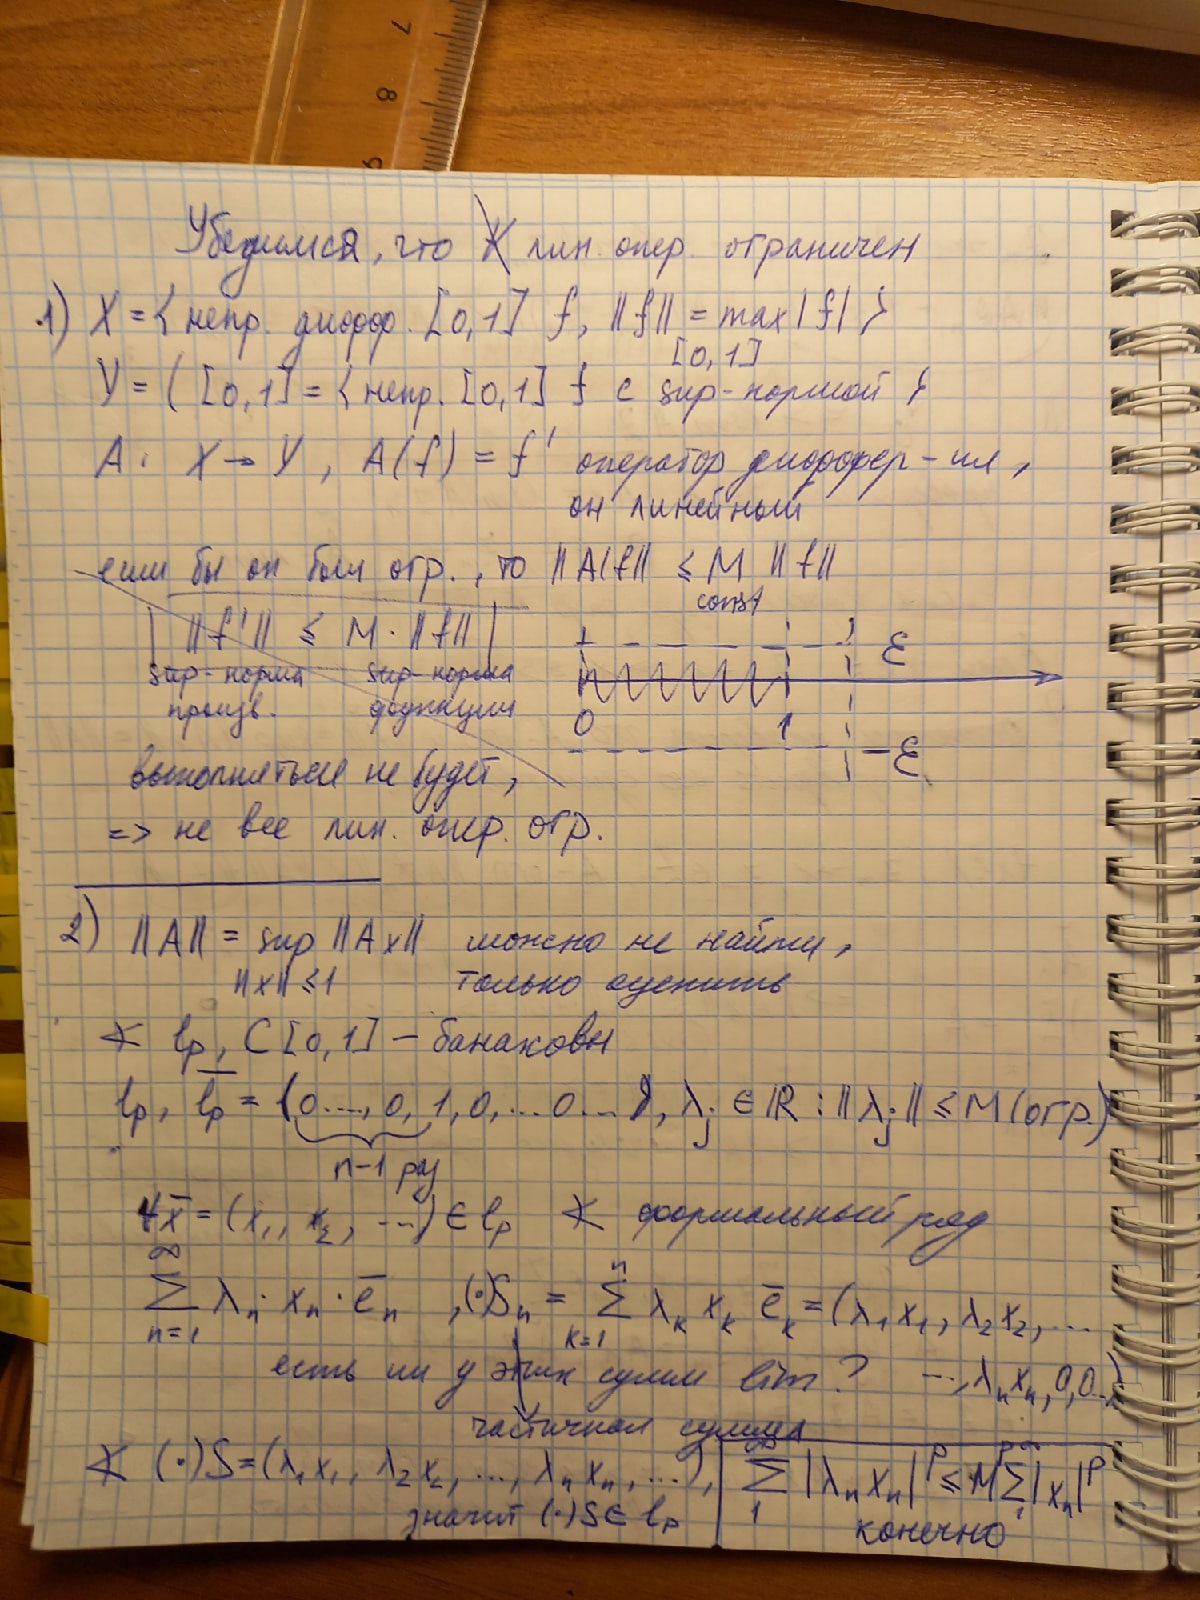 7
8
9
Убедимся, что ∀ лин. опер. ограничен
1) X = { непр. дифф. [0,1] f, ||f|| = max |f| }
[0,1]
Y = C [0,1] = { непр. [0,1] f с sup-нормой }
A: X → Y, A(f) = f' оператор диффер-ия,
он линейный
если бы он был огр., то ||A(f|| ≤ M ||f||
const
||f'|| ≤ M · ||f||
sup-норма sup-норма
произв. функции
ε
0 1
-ε
выполняться не будет,
=> не все лин. опер. огр.
2) ||A|| = sup ||Ax|| можно не найти,
||x|| ≤ 1 только оценить
∢ lp, C [0,1] – банаховы
lp, l̅p = (0..., 0, 1, 0, ... 0 ...), λj ∈ ℝ : ||λj|| ≤ M (огр.)
n-1 раз
∀ x̅ = (x₁, x₂, ...) ∈ lp ∢ формальный ряд
∞
∑ λn · xn · e̅n , (·)Sn = ∑ λk xk e̅k = (λ₁x₁, λ₂x₂, ...
n=1 n k=1
есть ли у этих сумм lim? ..., λn xn, 0, 0..)
частичная сумма
∢ (·) S = (λ₁x₁, λ₂x₂, ..., λn xn, ...), ∑ |λn xn|ᵖ ≤ Mᵖ ∑ |xn|ᵖ
значит (·) S ∈ lp конечно